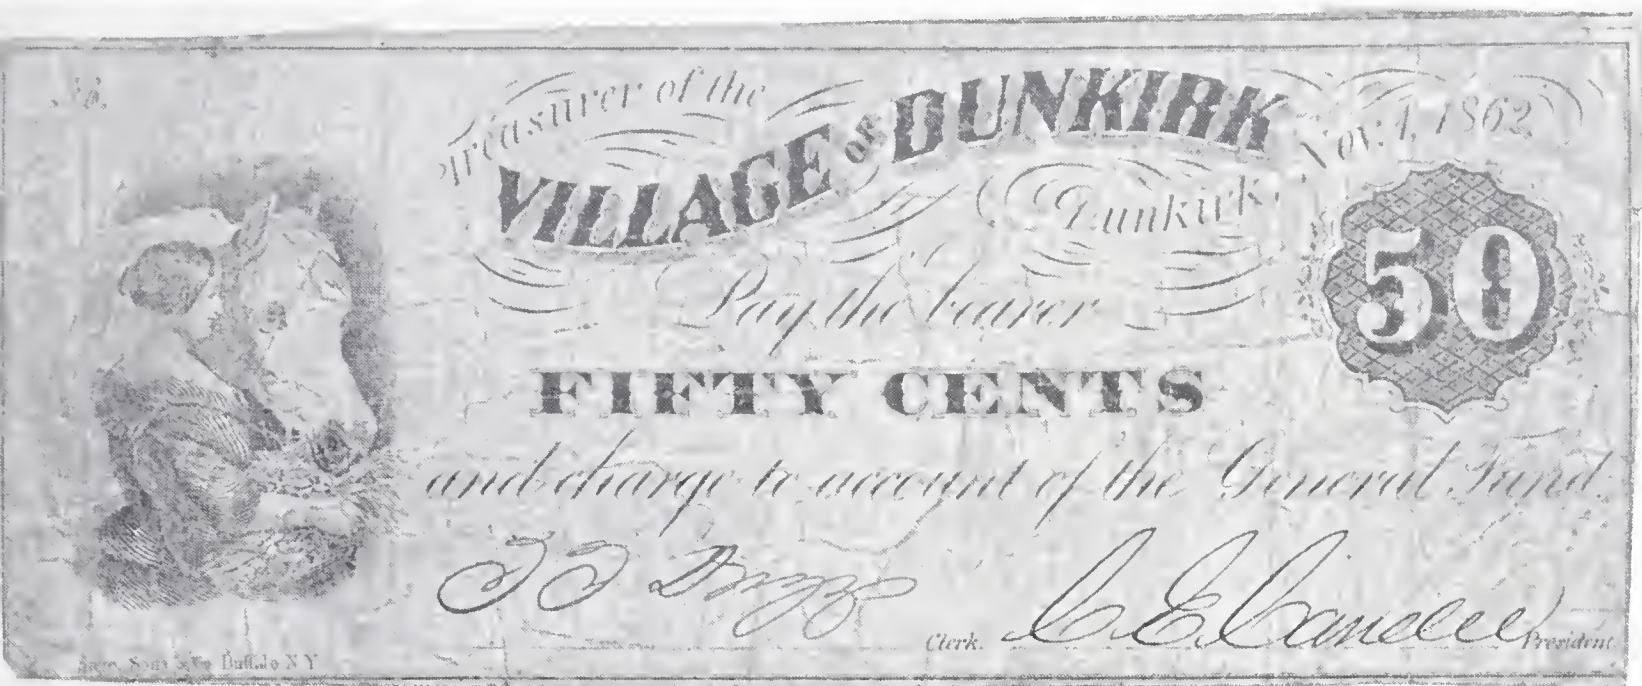 No.
Treasurer of the
VILLAGE OF DUNKIRK
Nov. 1, 1862
Dunkirk
50
Pay the bearer
FIFTY CENTS
and charge to account of the General Fund.
Clerk.
President.
Buffalo N Y